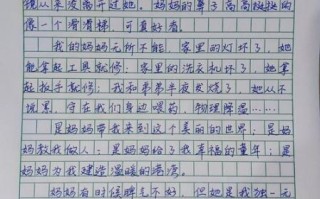 境从来没离开过她。妈妈的鼻子高高挺挺的
像一个滑滑梯，可真好看。
我的妈妈无所不能，家里的灯坏了，她
能拿起工具就修；家里的洗衣机坏了，她拿
起扳手就修；我和弟弟半夜发烧了，她从不
抱怨，守在我们身边喂药，物理降温……
是妈妈带我来到这个美丽的世界；是妈
妈教我做人；是妈妈给了我幸福的童年；是
妈妈为我建造温暖的港湾。
妈妈有时候脾气不好，但她是我独一无